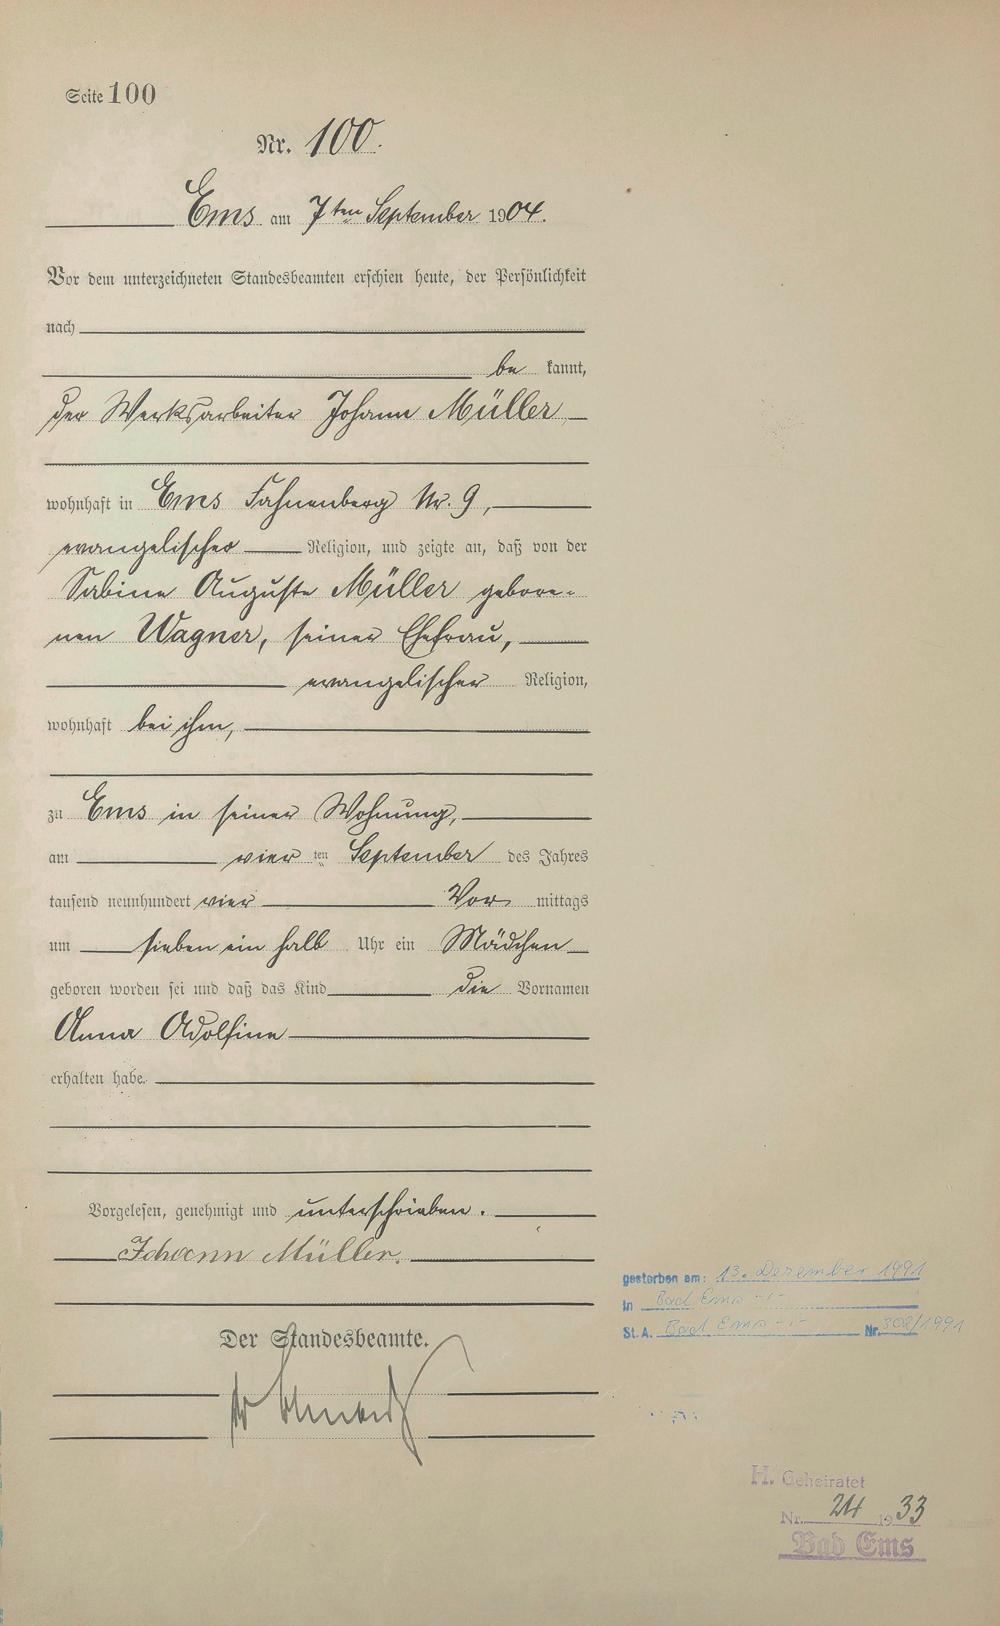 Seite 100
Nr. 100.
Ems am 7ten September 1904.
Vor dem unterzeichneten Standesbeamten erschien heute, der Persönlichkeit
nach
be kannt,
der Werksarbeiter Johann Müller
wohnhaft in Ems Fahnenberg Nr. 9,
evangelischer Religion, und zeigte an, daß von der
Sabine Auguste Müller gebore-
nen Wagner, seiner Ehefrau,
evangelischer Religion,
wohnhaft bei ihm,
zu Ems in seiner Wohnung,
am vier ten September des Jahres
tausend neunhundert vier Vor mittags
um sieben ein halb Uhr ein Mädchen
geboren worden sei und daß das Kind die Vornamen
Anna Adolfine
erhalten habe.
Vorgelesen, genehmigt und unterschrieben.
Johann Müller.
gestorben am: 13. Dezember 1991
in Bad Ems -.-
St.A. Bad Ems -.- Nr. 302/1991
Der Standesbeamte.
H. Geheiratet
Nr. 24 1933
Bad Ems